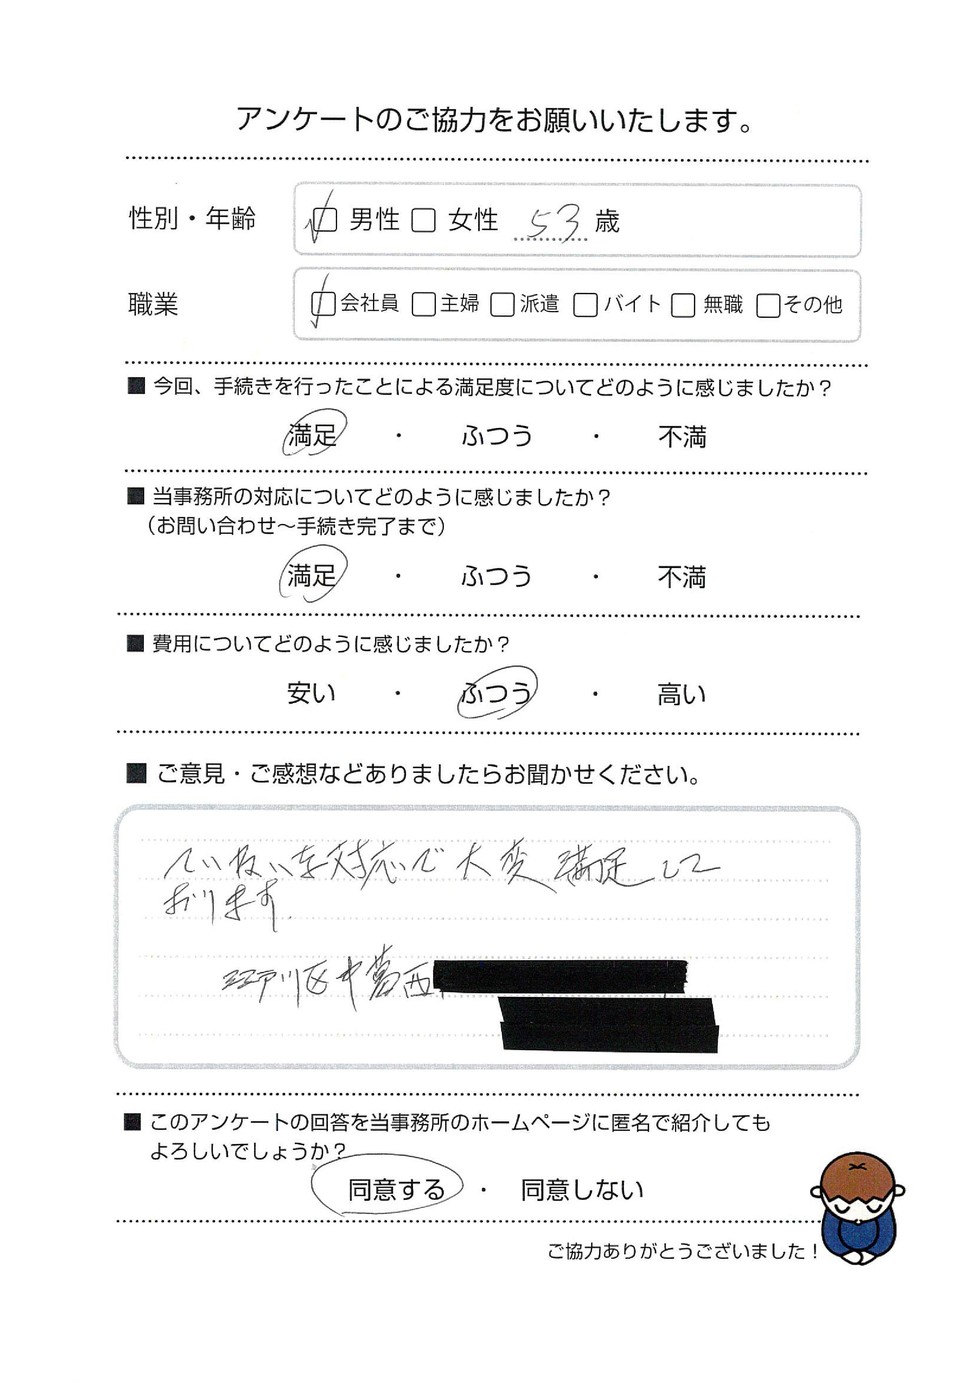 アンケートのご協力をお願いいたします。
性別・年齢 男性 女性 53歳
職業 会社員 主婦 派遣 バイト 無職 その他
■ 今回、手続きを行ったことによる満足度についてどのように感じましたか？
満足 ・ ふつう ・ 不満
■ 当事務所の対応についてどのように感じましたか？
（お問い合わせ～手続き完了まで）
満足 ・ ふつう ・ 不満
■ 費用についてどのように感じましたか？
安い ・ ふつう ・ 高い
■ ご意見・ご感想などありましたらお聞かせください。
ていねいな対応で大変満足して
おります.
江戸川区中葛西
■ このアンケートの回答を当事務所のホームページに匿名で紹介しても
よろしいでしょうか？
同意する ・ 同意しない
ご協力ありがとうございました！